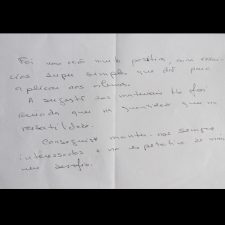 Foi uma ação muito positiva, com exercícios
super simples que dá para
aplicar nos alunos.
A sugestão dos materiais foi
na quantidade que na
versatilidade.
Conseguiste manter-nos sempre
interessados e na expetativa de mais
um desafio.